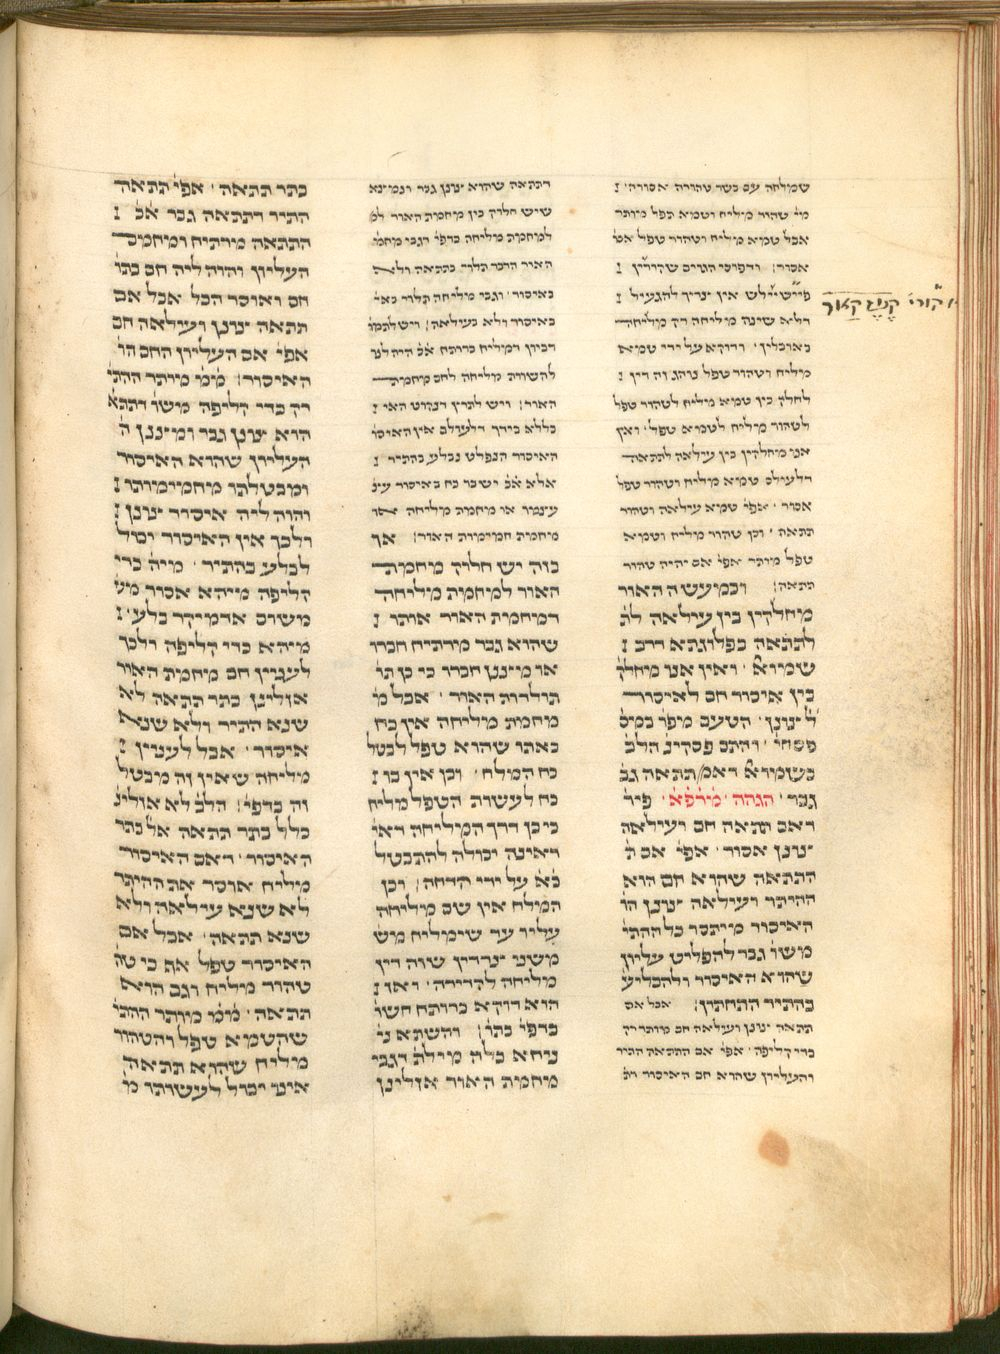 שמלחה עם בשר טהורה אסורה׳
מי טהור מליח וטמא תפל מותר
אבל טמא מליח וטהור טפל אס׳
אסור׃ ודפוסי הגוים שקורין
פיישיילש אין צריך להגעיל
דלא שינה מליחה רק מליחה
באוכלין׳ ודוקא על ידי טמא
מליח וטהור טפל נוהג זה דין
לחלק בין טמא מליח לטהור טפל
לטהור מליח לטמא טפל׳ ואין
אנו מחלקין בין עילאה לתתאה
דלעולם טמא מליח וטהור טפל
אסור׳ אפי׳ טמא עילאה וטהור
תתאה׳ וכן טהור מליח וטמא
טפל מותר אפי׳ אם יהיה טהור
תתאה׃ וכמעשה האור
מחלקין בין עילאה לת׳
לתתאה כפלוגתא דרב
שמוא׳ ואין אנו מחלק׳
בין איסור חם לאיסור
צונן׳ הטעם מפ׳ במס׳
פסחי׳ והתם פסקינן הלכ׳
כשמוא׳ דאמ׳ תתאה גב׳
גבר׳ הגהה׳ מרפא׳ פיר׳
דאם תתאה חם ועילאה
צונן אסור׳ אפי׳ אם ה׳
התתאה שהוא חם הוא
ההיתר ועילאה צונן הו׳
האיסור מיתסר כל ההתי׳
משו׳ גבר להפליט עליון
שהוא האיסור ולהבליע
בהתיר התחתון׃ אבל אם
תתאה צונן ועילאה חם מותר רק
כדי קליפה׳ אפי׳ אם התתאה התיר
והעליון שהוא חם האיסור דת׳
וקורי׳ קזגקאור
דתתאה שהוא צונן גבר ומצנא
שיש חלוק בין מחמת האור למ׳
למחמת מליחה כדפי׳ דגבי מחמ׳
האור הדבר תלוי בתתאה ולא
באיסור׳ וגבי מליחה תלוי באי׳
באיסור ולא בעילאה׃ ויש לתמו׳
דכיון דמליח כרותח אכ׳ היה לנו
להשוות מליחה לחם מחמת
האור׃ ויש לתרץ דנהוט האי׳
כללא בידך דלעולם אין האיסו׳
האיסור הנפלט נבלע בהתיר
אלא אכ׳ ישיבר כח באיסור עצ׳
עצמו או מחמת מליחה או
מחמת חמימות האור׃ אך
בזה יש חלוק מחמת
האור למחמת מליחה
דמחמת האור אותו
שהוא גבר מרתיח חברו
או מצנן חברו כי כן תו׳
תולדות האור׳ אבל מ׳
מחמת מליחה אין כח
באותו שהוא טפל לבטל
כח המלח׳ וכן אין בו
כח לעשות הטפל מליח
כי כן דרך המליחה דאי׳
דאינה יכולה להתבטל
כא׳ על ידי הדחה׃ וכן
המלח אין שם מליחה
עליו עד שימליח מש׳
משני צדדין שוה דין
מליחה לקדירה׳ ואו׳
הוא דוקא ברותח חשו׳
כדפי׳ בתו׳׃ והשתא ני׳
ניחא כלה מילת׳ דגבי
מחמת האור אזלינן
בתר תתאה׳ אפי׳ תתאה
התיר דתתאה גבר אכ׳
התתאה מרתיח ומחמם
העליון והוה ליה חם בתו׳
חם ואוסר הכל אבל אם
תתאה צונן ועילאה חם
אפי׳ אם העליון החם הו׳
האיסור׃ ממ׳ מיותר ההתי׳
רק כדי קליפה משו׳ דתתא׳
הוא צונן גבר ומצנן ה׳
העליון שהוא האיסור
ומבטלתו מחמימותו
והוה ליה איסור צונן
ולכך אין האיסור יכול
לבלע בהתיר׳ מיה׳ כדי
קליפה מיהא אסור מש׳
משום אדמיקר בלע׳
מיהא כדי קליפה ולכך
לענין חם מחמת האור
אזלינן בתר תתאה לא
שנא התיר ולא שנא
איסור׳ אבל לענין
מליחה שאין זה מבטל
זה כדפי׳׃ הלכ׳ לא אזלינ׳
כלל בתר תתאה אל׳ בתר
האיסור׳ דאם האיסור
מליח אוסר את ההיתר
לא שנא עילאה ולא
שנא תתאה׳ אבל אם
האיסור טפל אף כי טה׳
טהור מליח וגם הוא
תתאה׳ ממ׳ מותר ההתי׳
שהטמא טפל והטהור
מליח שהוא תתאה
אינו יכול לעשותו מ׳